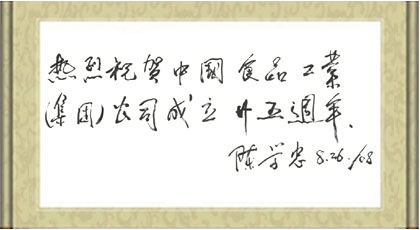 热烈祝贺中國食品工業
(集团)公司成立廿五週年、
陈学忠 8.26./08